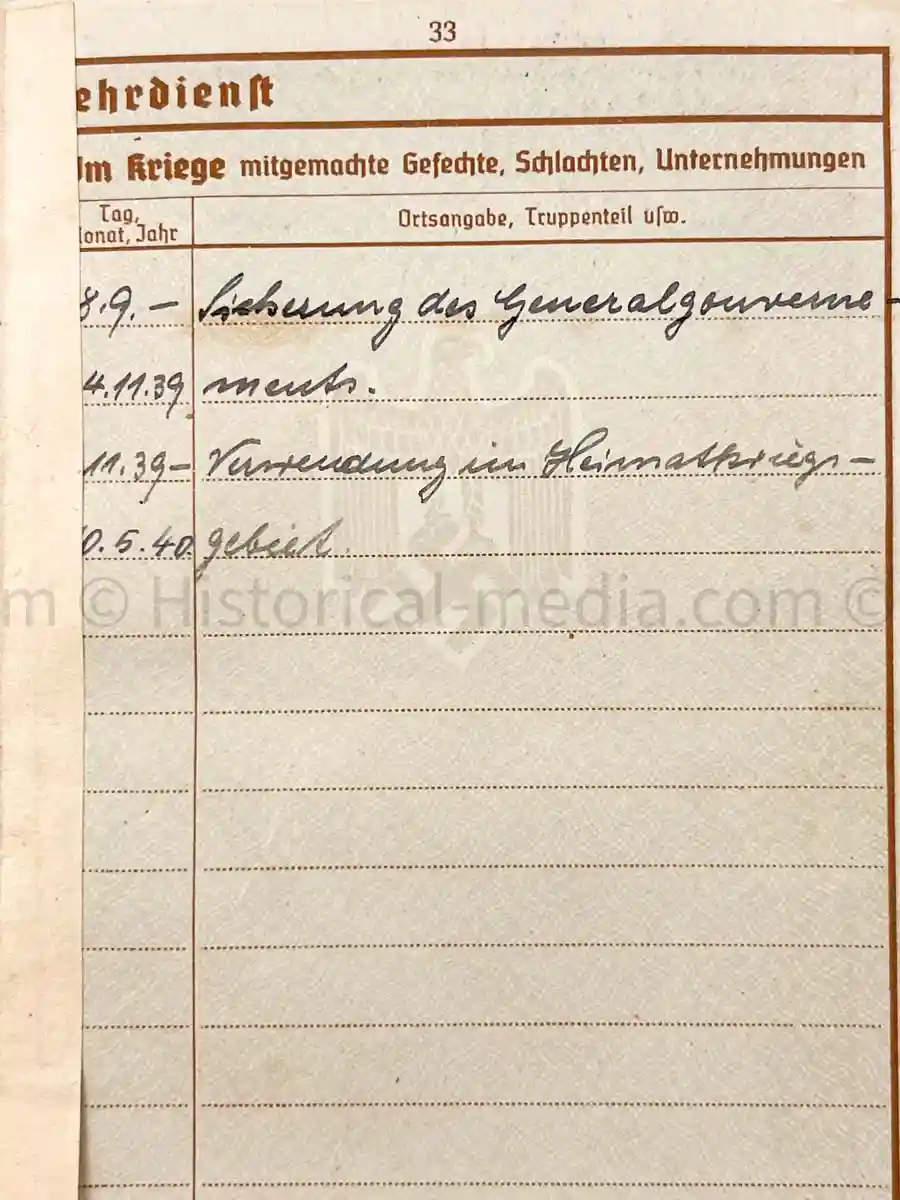 33
ehrdienst
Im Kriege mitgemachte Gefechte, Schlachten, Unternehmungen
Tag,
Monat, Jahr
Ortsangabe, Truppenteil usw.
8.9. – Sicherung des Generalgouverne-
4.11.39 ments.
11.39 – Verwendung im Heimatkriegs-
0.5.40. gebiet.
m © Historical-media.com ©